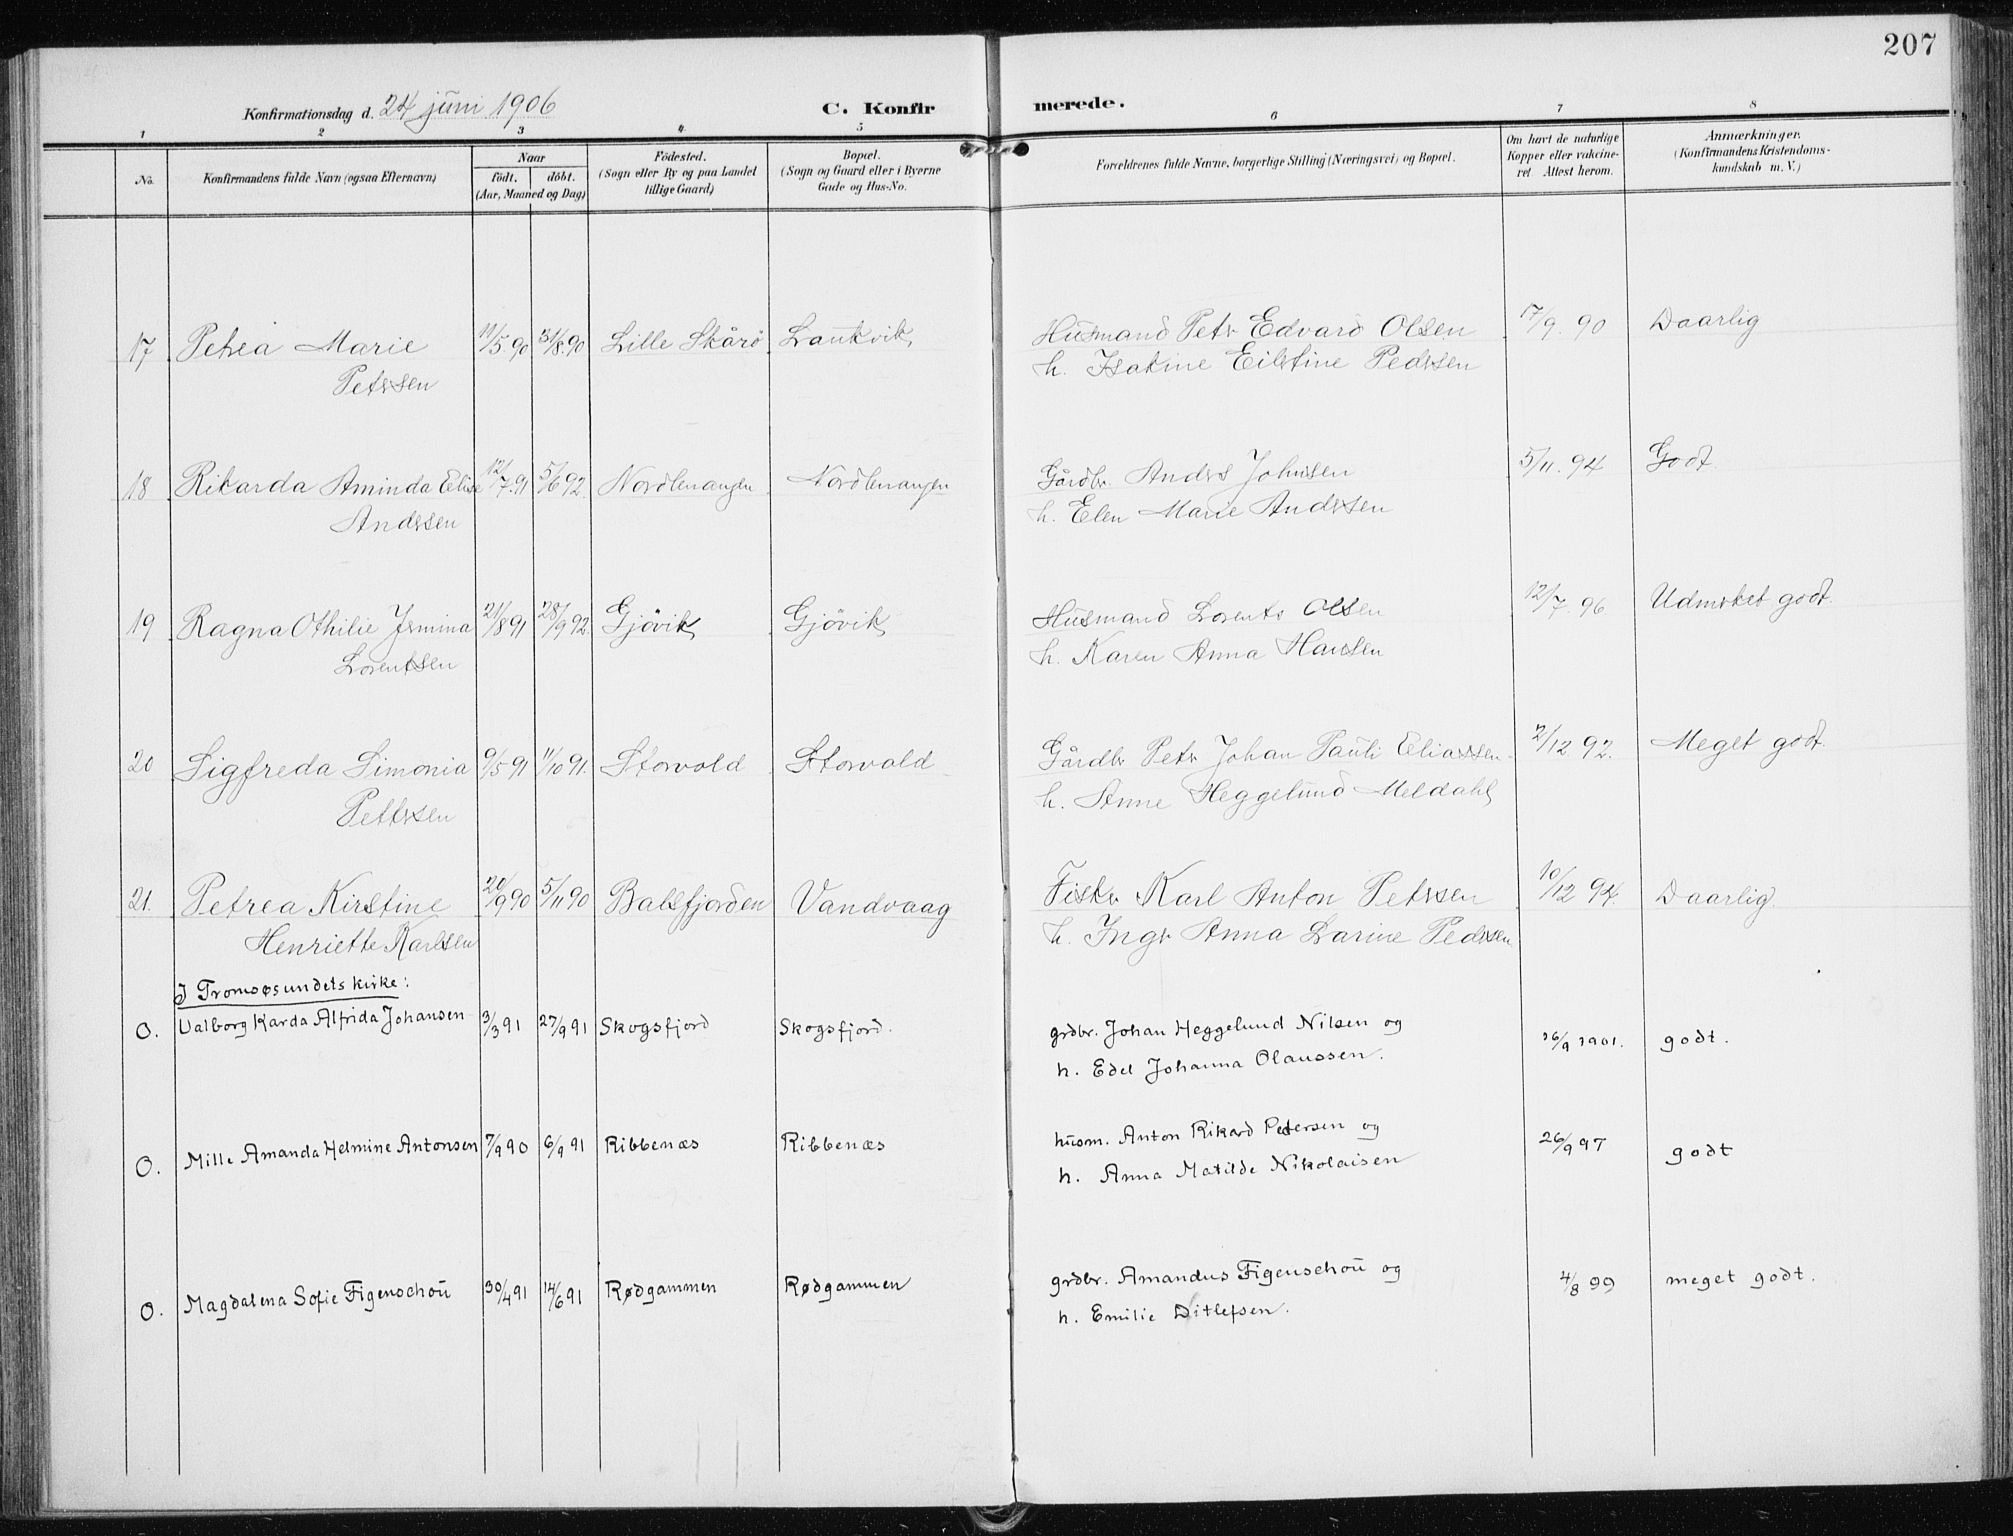 207
Konfirmationsdag d. 24 juni 1906 C. Konfir merede.
1 2 3 4 5 6 7 8
No. Konfirmandens fulde Navn (ogsaa Efternavn) Naar født. døbt. (Aar, Maaned og Dag) Fødested. (Sogn eller By og paa Landet tillige Gaard) Bopæl. (Sogn og Gaard eller i Byerne Gade og Hus-No. Forældrenes fulde Navne, borgerlige Stilling (Næringsvei) og Bopæl. Om havt de naturlige Kopper eller vakcineret Attest herom. Anmærkninger. (Konfirmandens Kristendomskundskab m. V.)
17 Petrea Marie 11/5 90 31/8. 90 Lille Skårö Lankvik, Husmand Petr Edvard Olsen 17/9. 90 Daarlig
Petersen h. Isakine Eilertine Pedersen
18 Rikarda Aminda Elise 12/7. 91 5/6 92 Nordlenangen Nordlenangen Gårdbr. Anders Johnsen 5/11. 94 Godt
Andersen h. Elen Marie Andersen
19 Ragna Othilie Jermina 21/8 91 28/9 92 Gjövik Gjövik Husmand Lorents Olsen 12/7. 96 Udmerket godt.
Lorentsen h. Karen Anna Hansen
20 Sigfreda Simonia 9/5 91 11/10 91. Storvold Storvold Gårdbr Peter Johan Pauli Eliassen 2/12 92. Meget godt.
Pettersen h. Anne Heggelund Meldahl
21. Petrea Kirstine 20/9 90 5/11 90 Balsfjorden Vandvaag Fisker Karl Anton Petersen 10/12 94. Daarlig.
Henriette Karlsen h. Inger Anna Larine Pedersen
I Tromsøsundets kirke:
O. Valborg Karda Alfrida Johansen 3/3 91 27/9 91 Skogsfjord Skogsfjord. grdbr. Johan Heggelund Nilsen og 16/9 1901. godt.
h. Edel Johanna Olaussen.
O. Mille Amanda Helmine Antonsen 7/9 90 6/9 91 Ribbenæs Ribbenæs husm. Anton Rikard Petersen og 26/9 97 godt
h. Anna Matilde Nikolaisen
O. Magdalena Sofie Figenschou 30/4 91 14/6 91 Rødgammen Rødgammen grdbr. Amandus Figenschou og 4/8 99 meget godt.
h. Emilie Ditlefsen.